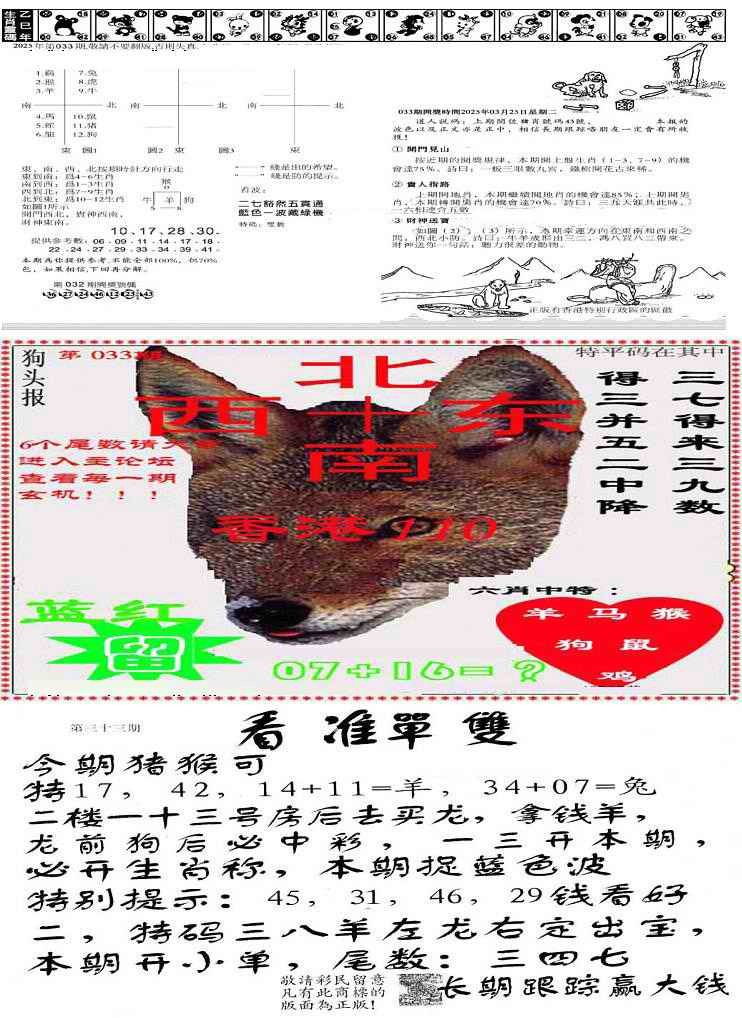 生肖靈碼
乙巳年
2025年第033期,敬請不要翻版,否則失真.
1.鷄 7.兔
2.猴 8.虎
3.羊 9.牛
南 北 南 北 南 北
4.馬 10.鼠
5.蛇 11.猪
6.龍 12.狗
東 圖1 圖2 東 圖3 東
東、南、西、北按順時針方向行走
東到南：爲4-6生肖
南到西：爲1-3生肖
西到北：爲7-9生肖
北到東：爲10-12生肖
如圖1所示
開門西北，貴神西南，
財神東南。
猴
牛 羊 狗
綫是出的希望。
綫是防的提示。
看波：
二七豁然五貫通
藍色一波藏綠機
特碼：雙數
10.17.28.30.
提供參考數：06·09·11·14·17·18·
22·24·27·29·33·34·39·41·
本期爲你提供參考,不能全部100%，但70%
色，如果相信,下回再分解。
第032期開獎號碼
033期開獎時間2025年03月25日星期二
道人説碼：上期開位猪肖號碼43號， 本報的
波色以及正文亦是正中，相信長期跟踪咯朋友一定會有所收
獲！
① 開門見山
按近期的開獎規律，本期開上盤生肖（1-3，7-9）的機
會達75%，詩曰：一板三眼數九宮，鐵樹開花古來稀。
② 貴人指路
上期開地肖，本期繼續開地肖的機會達85%；上期開集
肖，本期轉開集肖的機會達70%。詩曰：三九天涯共此時，
一六相逢合五數
③ 財神送寶
如圖（2）、（3）所示，本期幸運方向在東南和西南之
間，西北小防。詩曰：牛羊成形出三二，馮八買八二得東。
財神送你一句話：聽力很差的動物。
正版有香港特別行政區的區徽
狗头报
第 033期
特平码在其中
三七得来三九数
得三并五二中降
北
西 十 东
南
6个尾数请大家
进入主论坛
查看每一期
玄机！！！
香港110
六肖中特：
羊 马 猴
狗 鼠
鸡
蓝红
留
07+16=？
第三十三期
看准單雙
今期猪猴可
特17，42，14+11=羊，34+07=兔
二楼一十三号房后去买龙，拿钱羊，
龙前狗后必中彩，一三开本期，
必开生肖称，本期捉蓝色波
特别提示：45，31，46，29钱看好
二，特码三八羊左龙右定出宝，
本期开小单，尾数：三四七
敬請彩民留意
凡有此商標的
版面為正版！
长期跟踪赢大钱